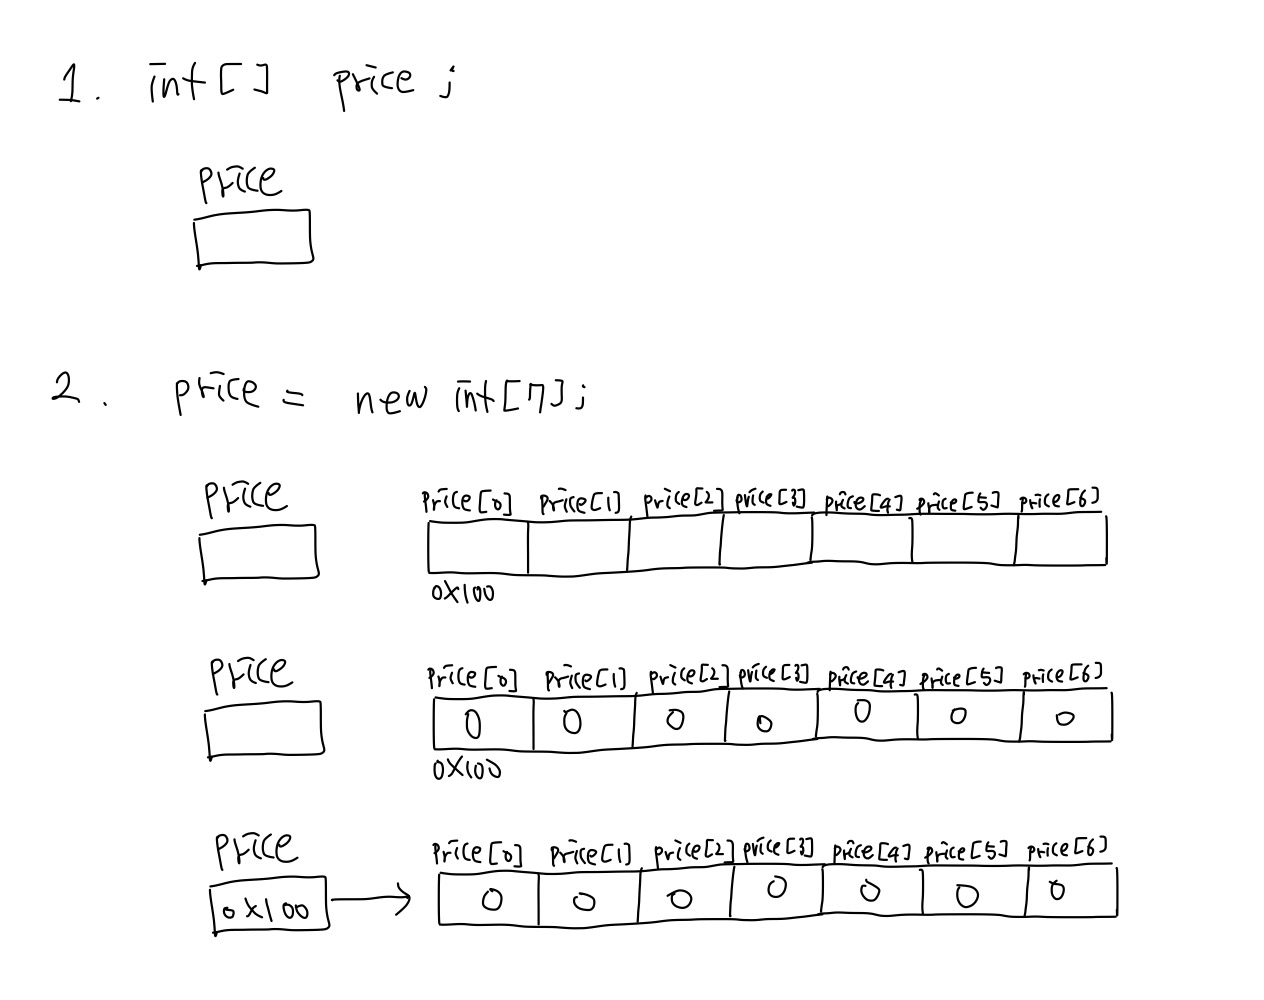 1. int[] price;
price
2. price = new int[7];
price price[0] price[1] price[2] price[3] price[4] price[5] price[6]
0x100
price price[0] price[1] price[2] price[3] price[4] price[5] price[6]
0 0 0 0 0 0 0
0x100
price price[0] price[1] price[2] price[3] price[4] price[5] price[6]
0x100 0 0 0 0 0 0 0